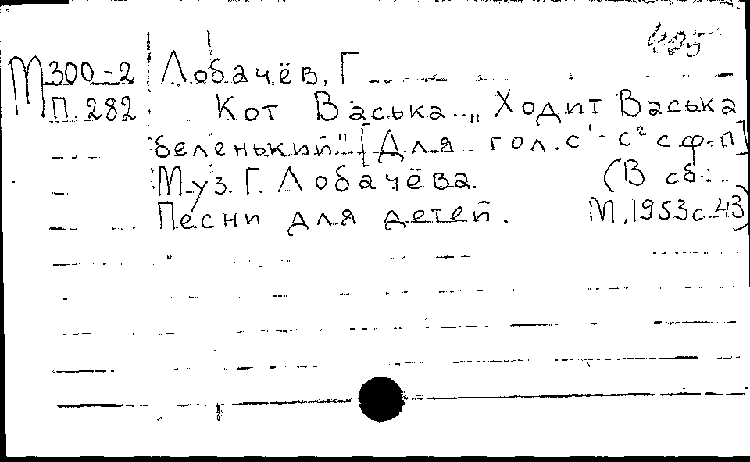 М 300-2 Лобачёв, Г
П. 282 Кот Васька „Ходит Васька
беленький" [Для гол. с¹ - с² с ф-п]
Муз. Г. Лобачёва. (В сб:
Песни для детей. М, 1953 с 43)